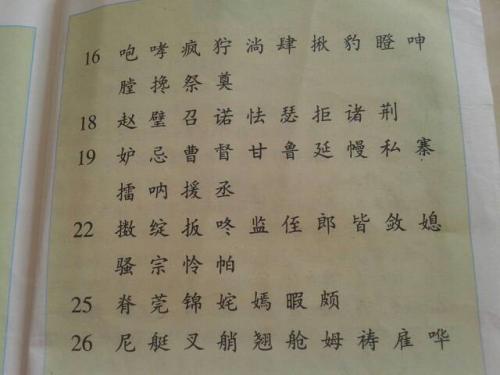 16 咆 哮 疯 狞 淌 肆 揪 豹 瞪 呻
膛 搀 祭 奠
18 赵 璧 召 诺 怯 瑟 拒 诸 荆
19 妒 忌 曹 督 甘 鲁 延 幔 私 寨
擂 呐 援 丞
22 擞 绽 扳 咚 监 侄 郎 皆 敛 媳
骚 宗 怜 帕
25 脊 莞 锦 姹 嫣 暇 颇
26 尼 艇 叉 艄 翘 舱 姆 祷 雇 哗